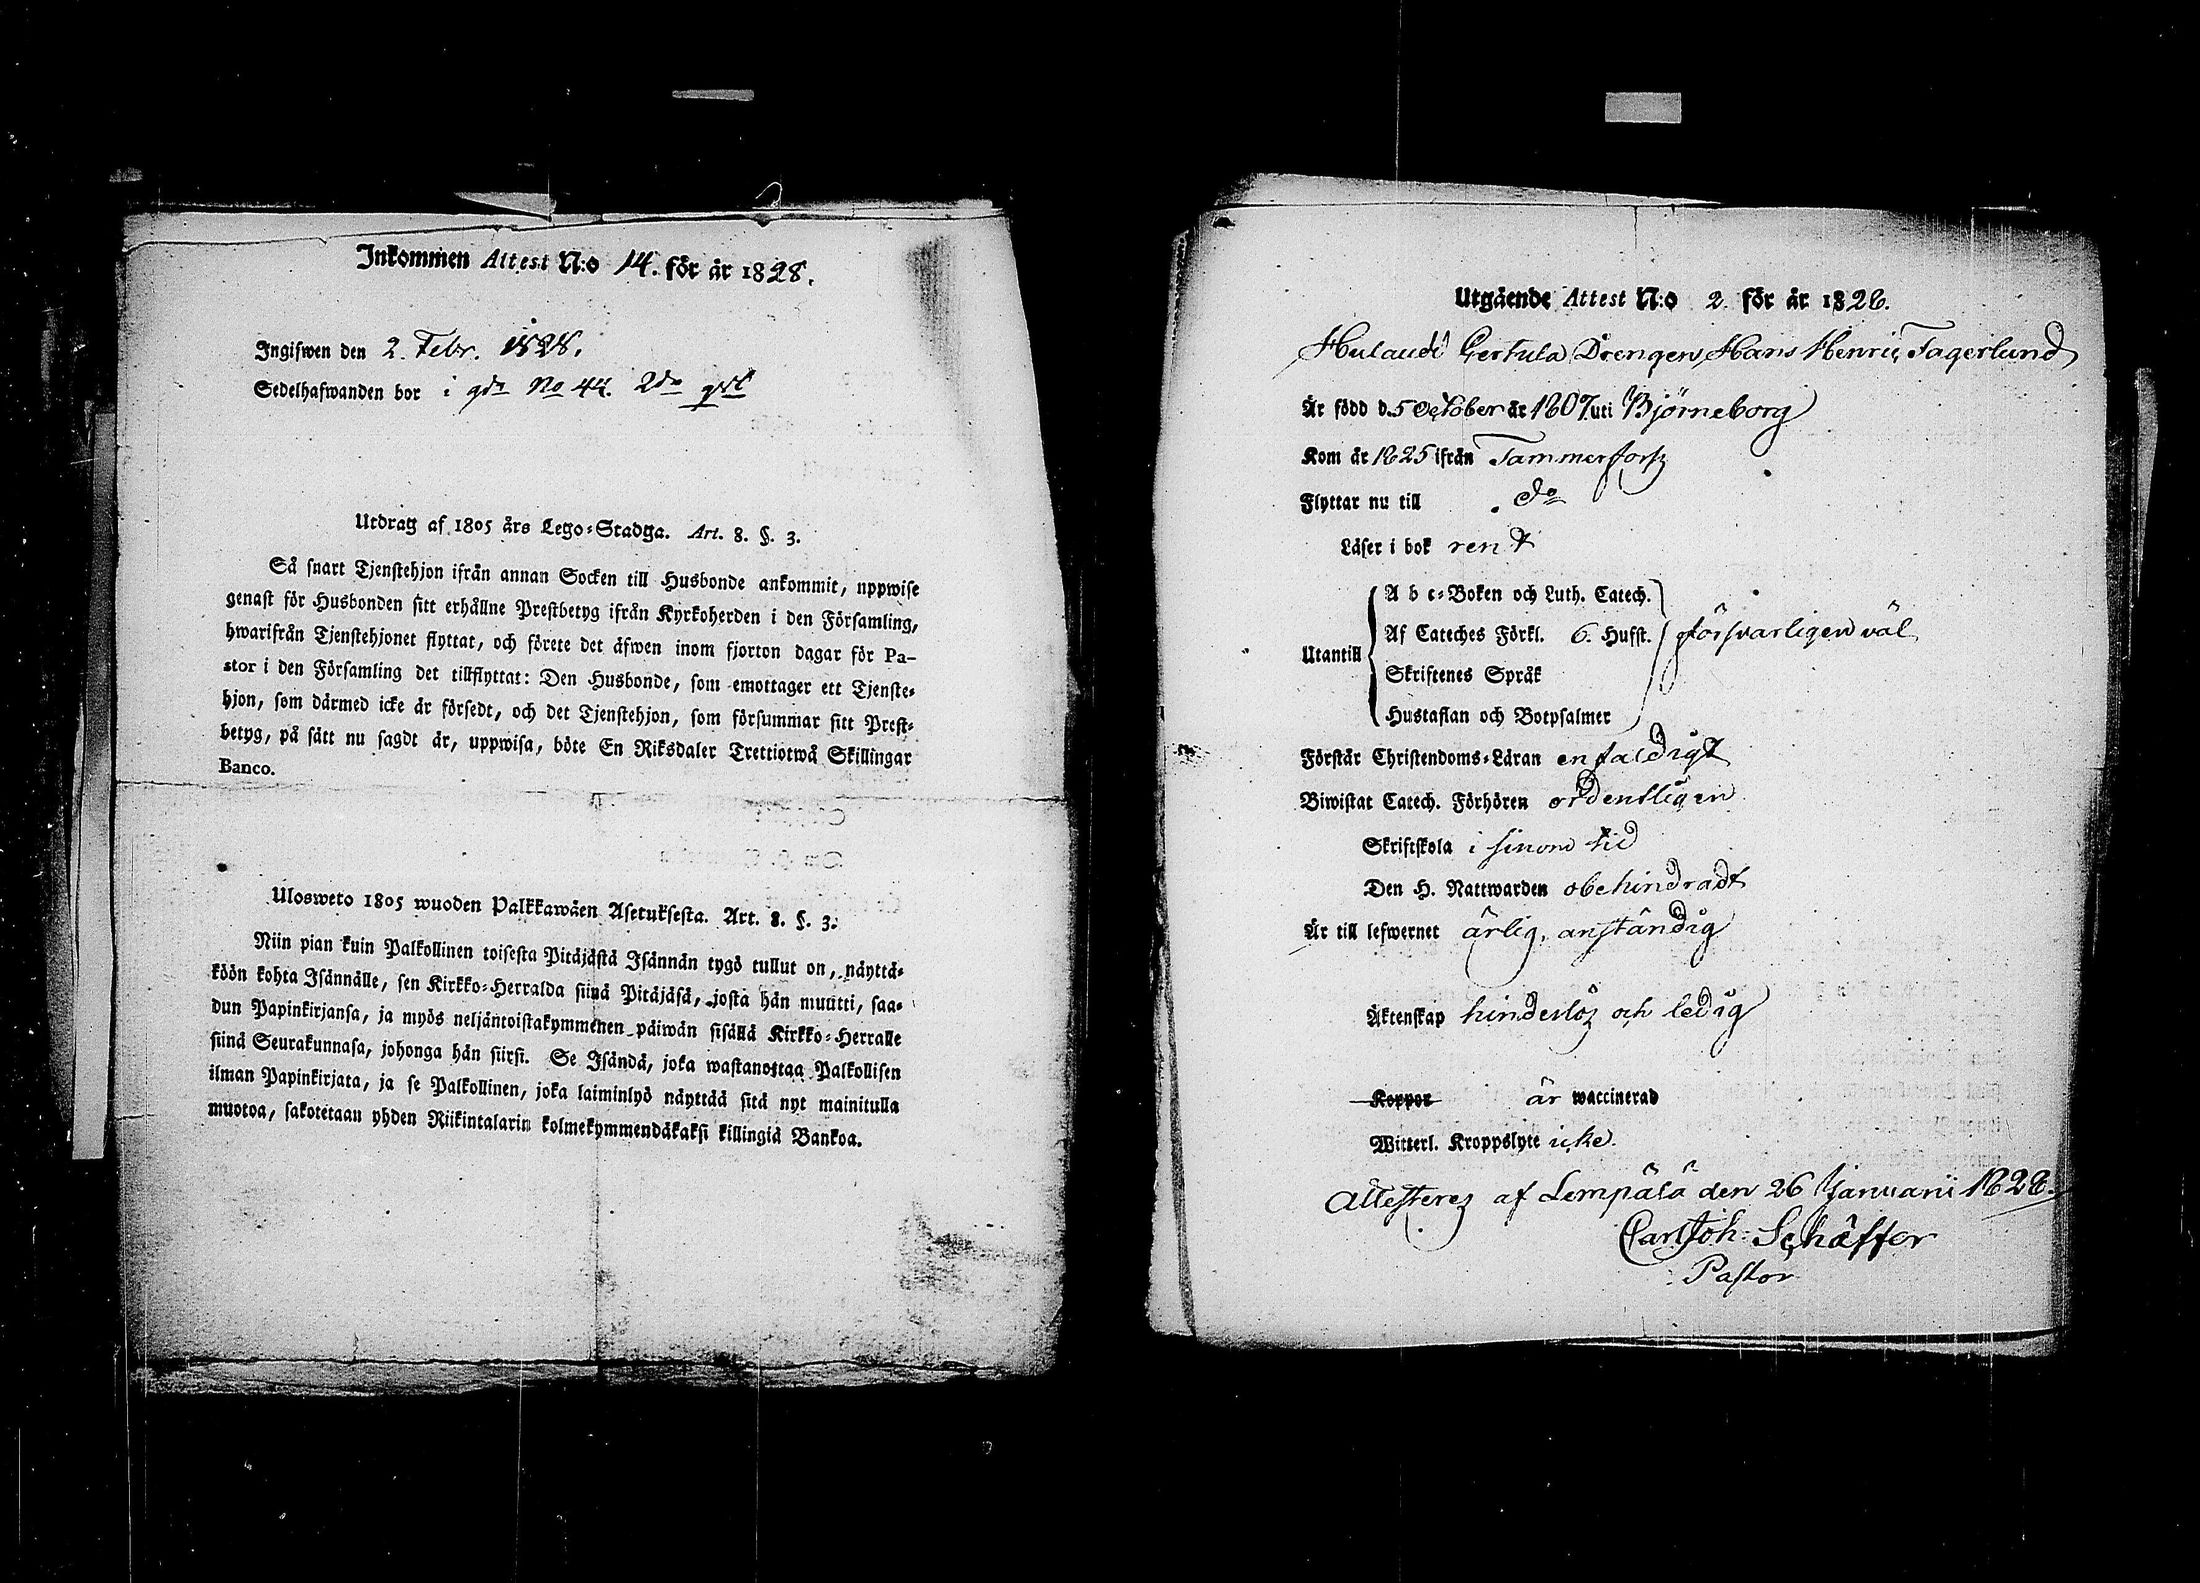 Inkommen Attest N:o 14. för år 1828.
Ingifwen den 2. Febr. 1828.
Sedelhafwanden bor i gdn No 44. 2dra qvt
Utdrag af 1805 års Lego-Stadga. Art. 8. §. 3.
Så snart Tjenstehjon ifrån annan Socken till Husbonde ankommit, uppwise
genast för Husbonden sitt erhållne Prestbetyg ifrån Kyrkoherden i den Församling,
hwarifrån Tjenstehjonet flyttat, och förete det äfwen inom fjorton dagar för Pa-
stor i den Församling det tillflyttat: Den Husbonde, som emottager ett Tjenste-
hjon, som därmed icke är försedt, och det Tjenstehjon, som försummar sitt Prest-
betyg, på sätt nu sagdt är, uppwisa, böte En Riksdaler Trettiotwå Skillingar
Banco.
Ulosweto 1805 wuoden Palkkawäen Asetuksesta. Art. 8. §. 3.
Niin pian kuin Palkollinen toisesta Pitäjästä Isännän tygö tullut on, näyttä-
köön kohta Isännälle, sen Kirkko-Herralda siinä Pitäjäsä, josta hän muutti, saa-
dun Papinkirjansa, ja myös neljäntoistakymmenen päiwän sisällä Kirkko-Herralle
siinä Seurakunnasa, johonga hän siirsi. Se Isändä, joka wastanottaa Palkollisen
ilman Papinkirjata, ja se Palkollinen, joka laiminlyö näyttää sitä nyt mainitulla
muotoa, sakotetaan yhden Riikintalarin kolmekymmendäkaksi killingiä Bankoa.
Utgående Attest N:o 2. för år 1828.
Hulaudi Gertula Drengen Hans Henric Fagerlund
Är född d. 5 October år 1807. uti Björneborg
Kom år 1825 ifrån Tammerforss
Flyttar nu till do
Läser i bok rent
Utantill
A b c-Boken och Luth. Catech.
Af Cateches Förkl. 6. Hufst. försvarligen väl
Skriftenes Språk
Hustaflan och Botpsalmer
Förstår Christendoms-Läran enfaldigt
Biwistat Catech. Förhören ordentligen
Skriftskola i sinom tid
Den H. Nattwarden obehindradt
Är till lefwernet ärlig, anständig
Äktenskap hinderlös och ledig
Koppor är waccinerad
Witterl. Kroppslyte icke.
Attesteras af Lempälä den 26 Januarii 1828.
Carl Joh. Schäffer
Pastor